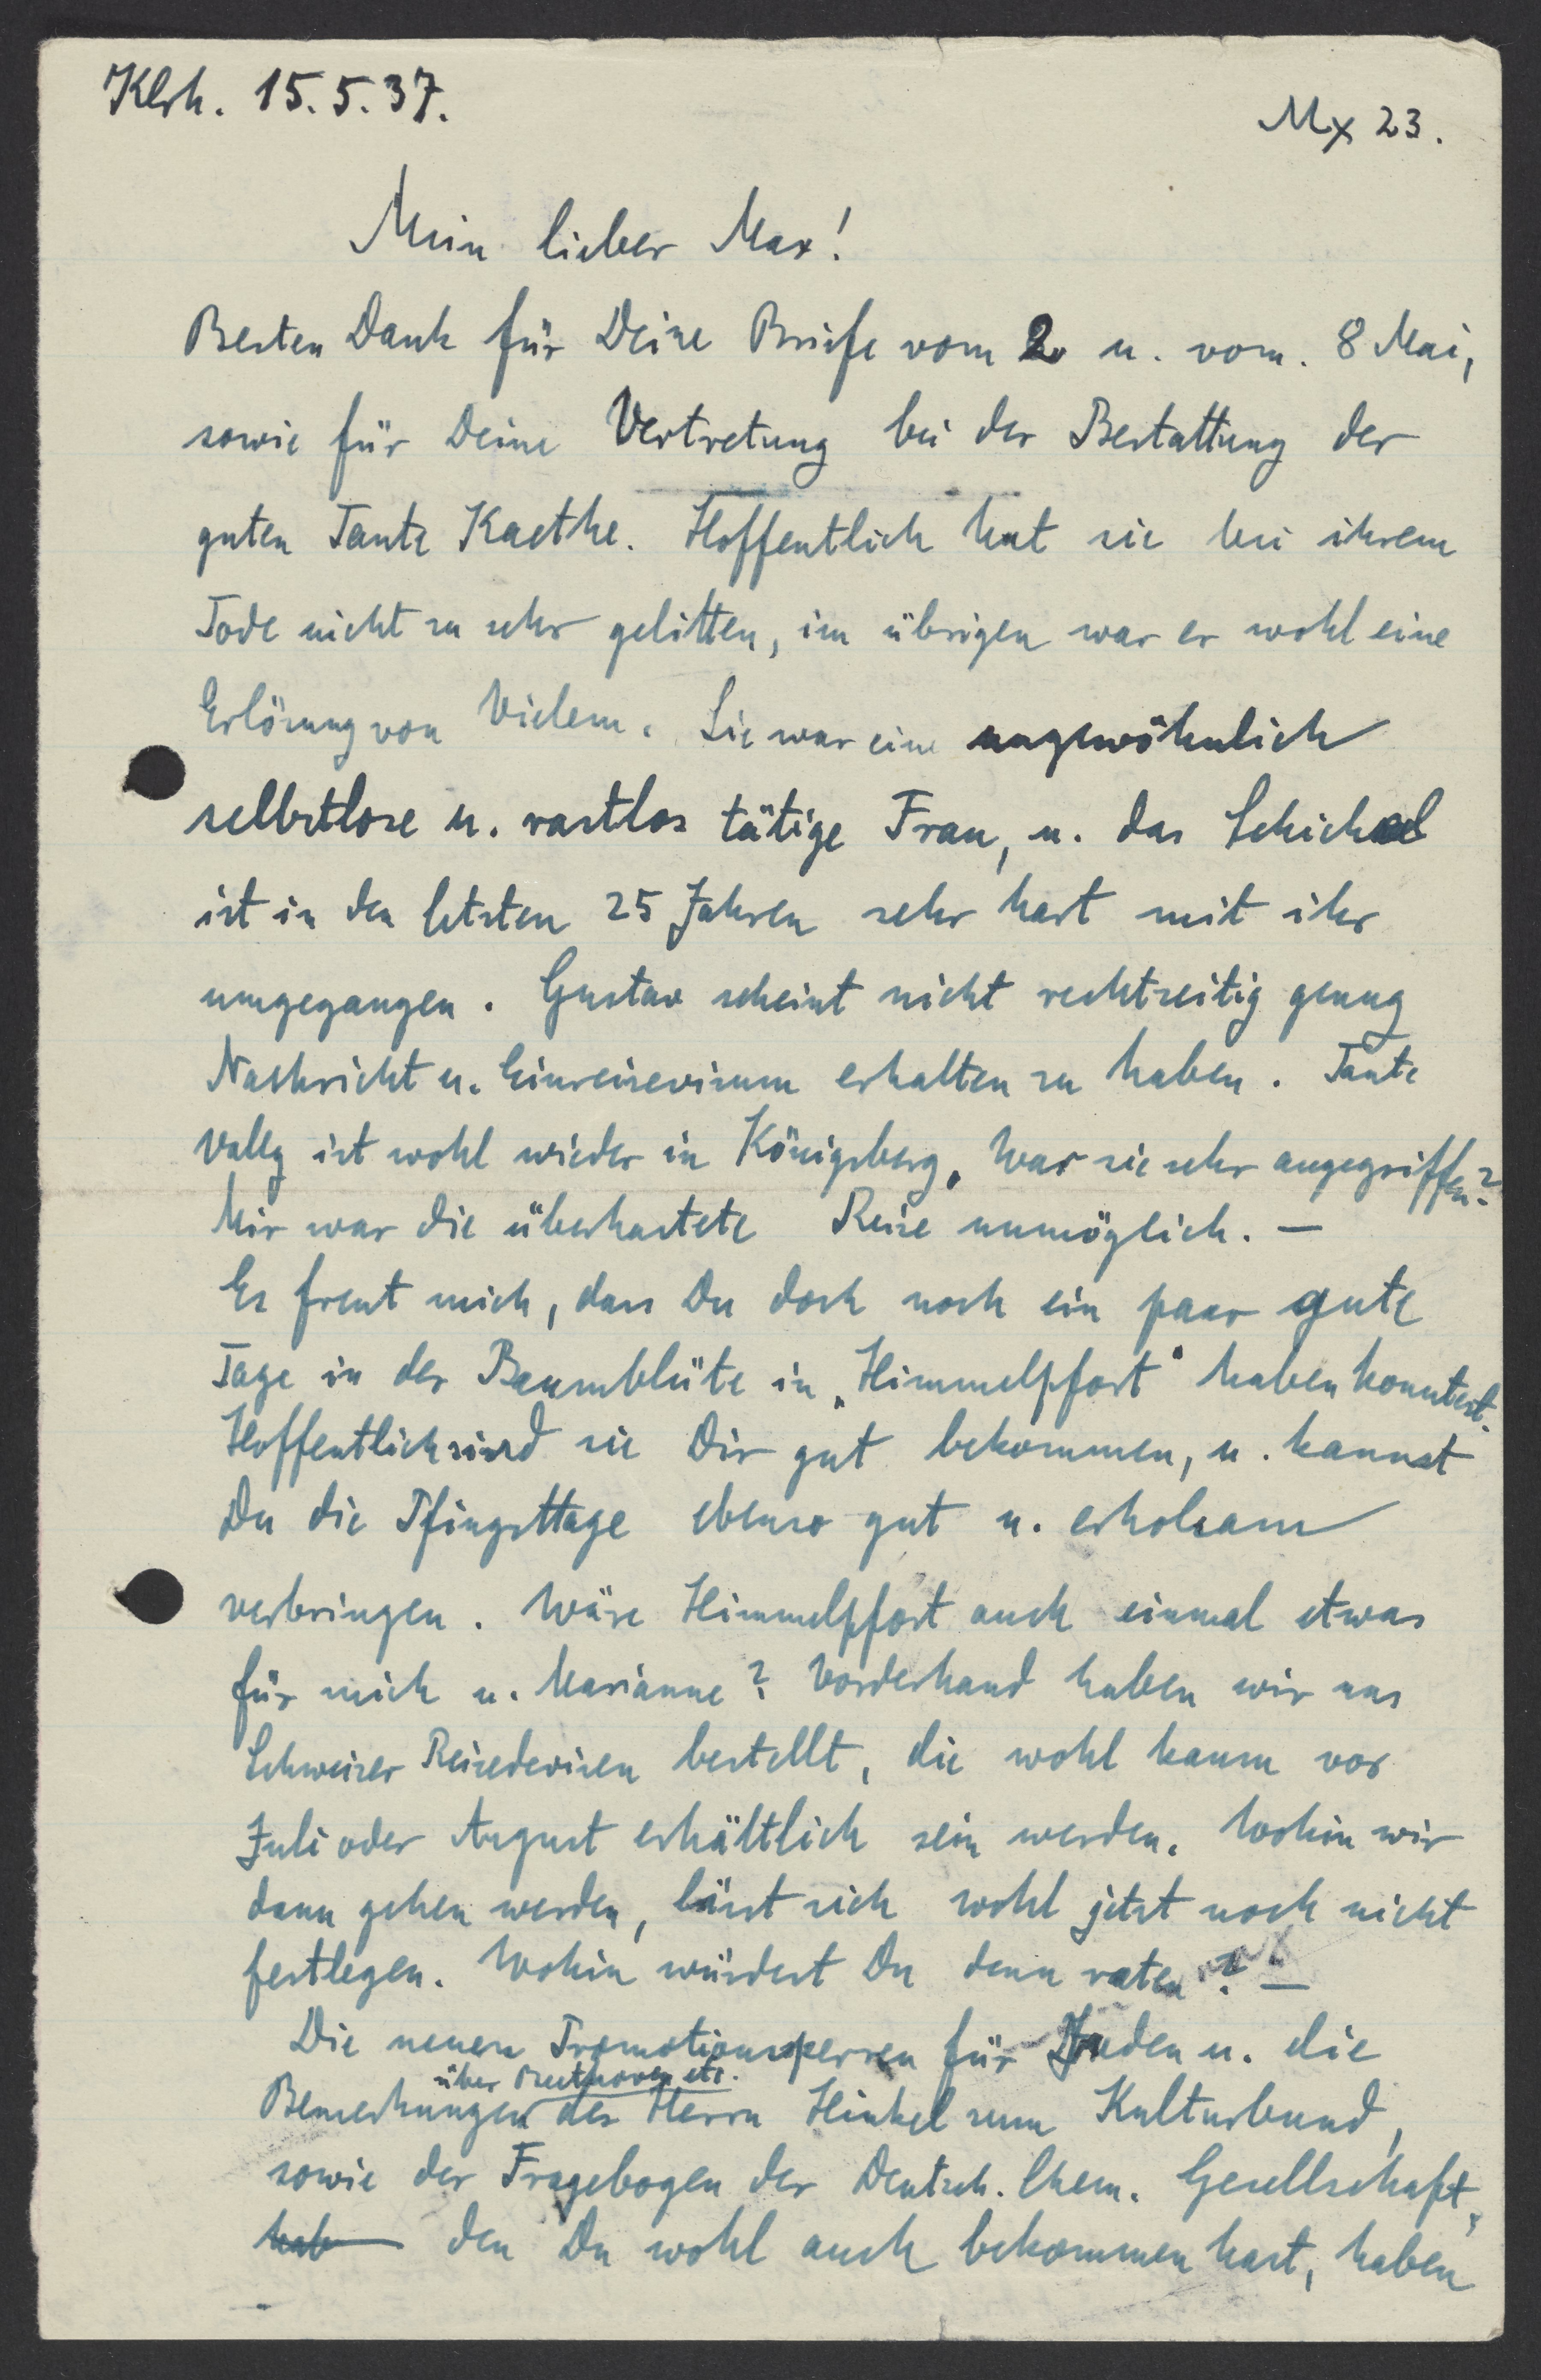 Klrh. 15.5.37.
Mx 23.
Mein lieber Max!
Besten Dank für Deine Briefe vom 2. u. vom. 8 Mai,
sowie für Deine Vertretung bei der Bestattung der
guten Tante Kaethe. Hoffentlich hat sie bei ihrem
Tode nicht zu sehr gelitten, im übrigen war es wohl eine
Erlösung von Vielem. Sie war eine ungewöhnlich
selbstlose u. rastlos tätige Frau, u. das Schicksal
ist in den letzten 25 Jahren sehr hart mit ihr
umgegangen. Gustav scheint nicht rechtzeitig genug
Nachricht u. Einreisevisum erhalten zu haben. Tante
Vally ist wohl wieder in Königsberg, War sie sehr angegriffen?
Mir war die überhastete Reise unmöglich. —
Es freut mich, dass Du doch noch ein paar gute
Tage in der Baumblüte in „Himmelpfort“ haben konntest.
Hoffentlich sind sie Dir gut bekommen, u. kannst
Du die Pfingsttage ebenso gut u. erholsam
verbringen. Wäre Himmelpfort auch einmal etwas
für mich u. Marianne? Vorderhand haben wir uns
Schweizer Reisedevisen bestellt, die wohl kaum vor
Juli oder August erhältlich sein werden. Wohin wir
dann gehen werden, lässt sich wohl jetzt noch nicht
festlegen. Wohin würdest Du denn raten? —
Die neuen Promotionssperren für Juden u. die
über Beethoven etc.
Bemerkungen des Herrn Hinkel zum Kulturbund,
sowie der Fragebogen der Deutsch. Chem. Gesellschaft,
hab den Du wohl auch bekommen hast, haben